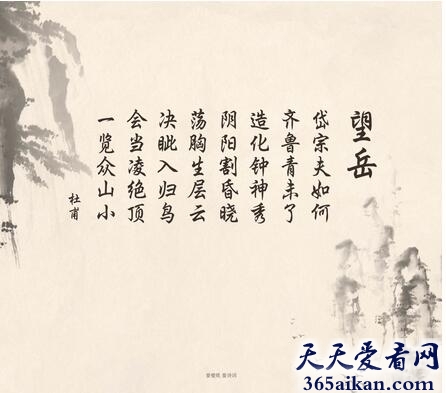 望岳
岱宗夫如何
齐鲁青未了
造化钟神秀
阴阳割昏晓
荡胸生层云
决眦入归鸟
会当凌绝顶
一览众山小
杜甫
天天爱看网
365aikan.com